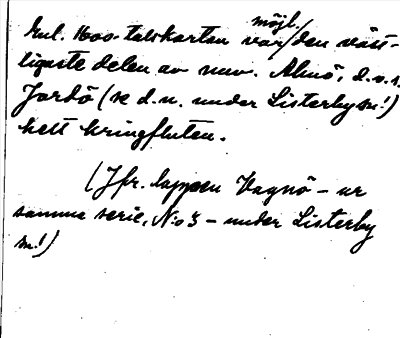 möjl.
Enl. 1600-talskartan var/den väst-
ligaste delen av nuv. Almö, d.v.s.
Jordö (se d.n. under Listerby sn!)
helt kringfluten.
(Jfr. lappen Vagnö – ur
samma serie, No 3 – under Listerby
sn!)